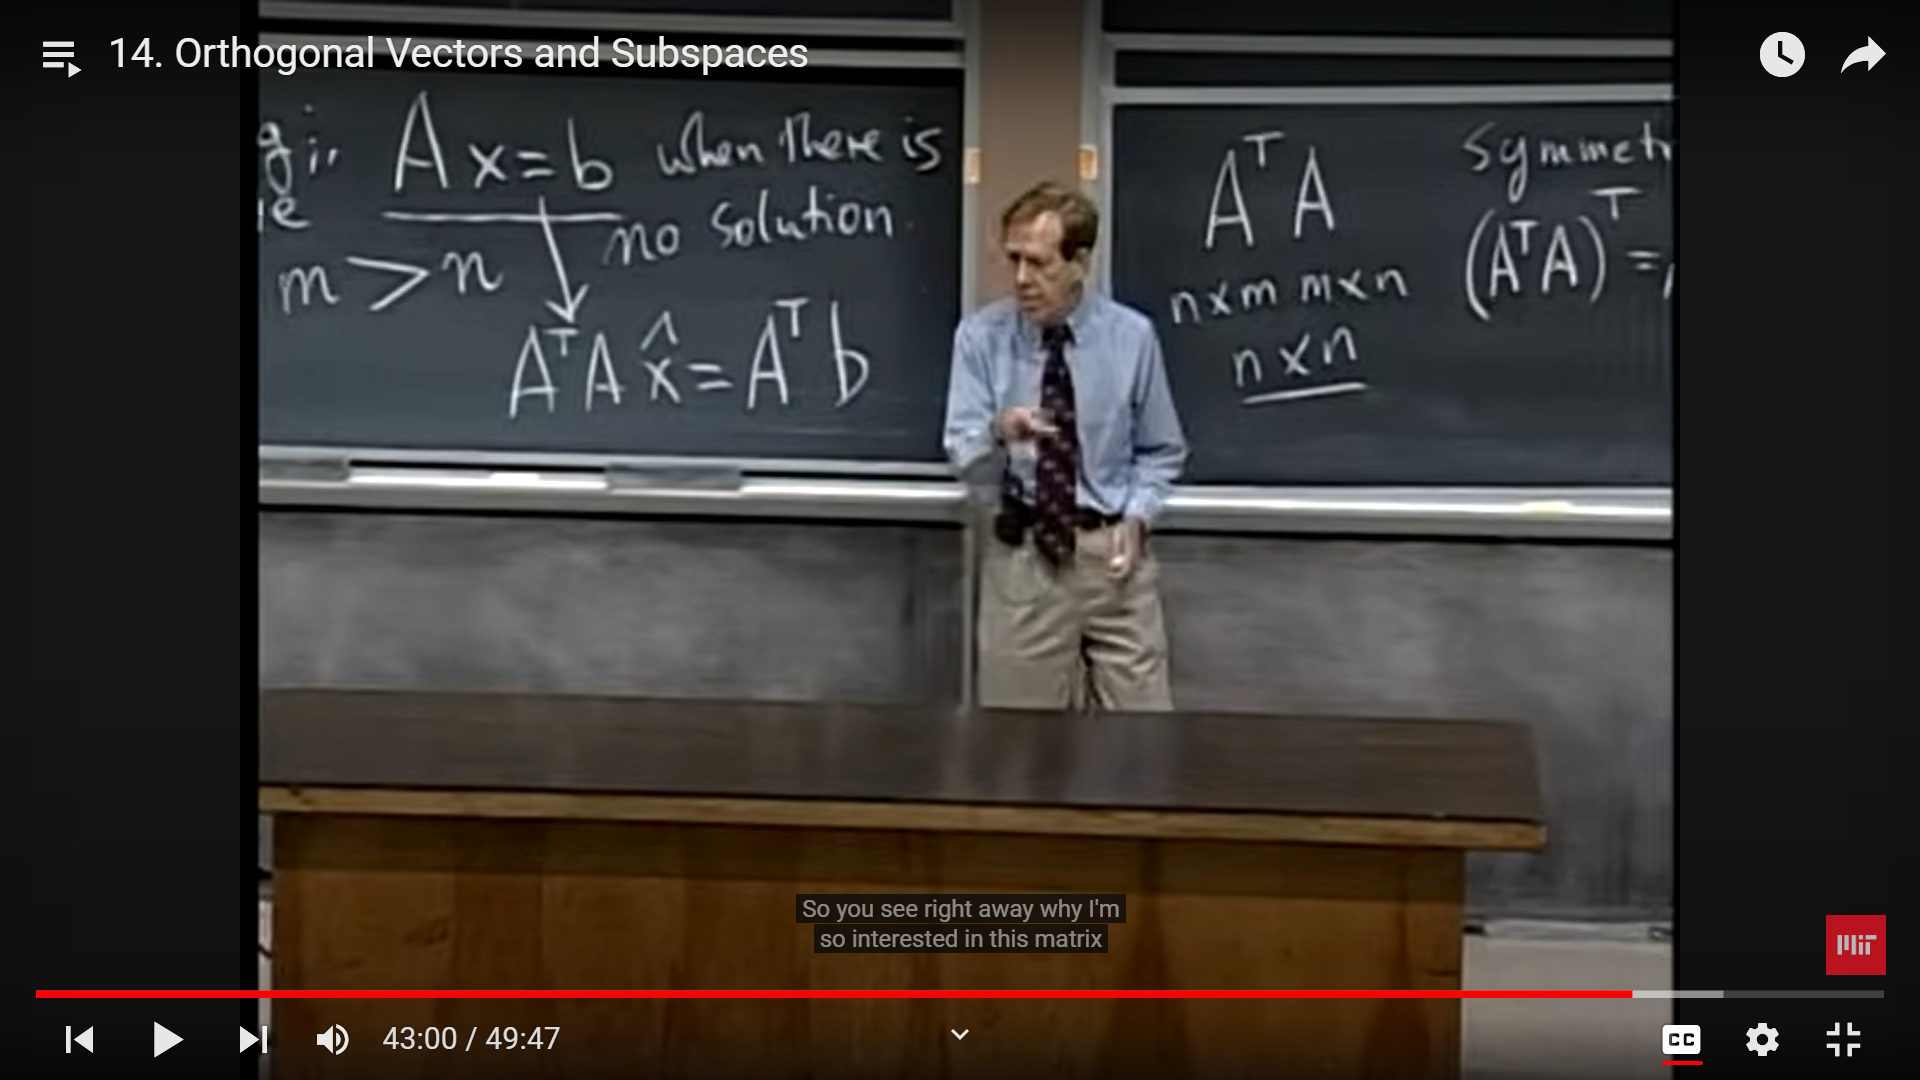 14. Orthogonal Vectors and Subspaces
Ax=b when there is
no solution
m>n
AᵀA x̂ = Aᵀb
AᵀA
n×m m×n
n×n
symmetr
(AᵀA)ᵀ =
So you see right away why I'm
so interested in this matrix
MiT
43:00 / 49:47
CC